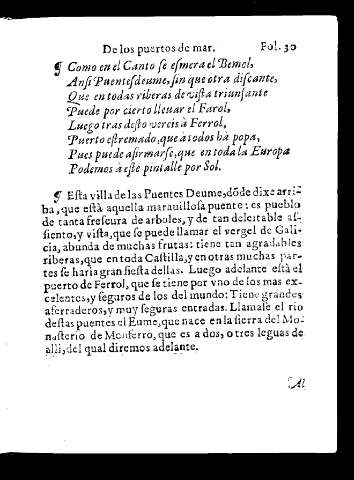 De los puertos de mar. Fol. 30
¶ Como en el Canto se esmera el Bemol,
Ansi Puentesdeume, sin que otra discante,
Que en todas riberas de vista triunfante
Puede por cierto lleuar el Farol,
Luego tras desto vereis à Ferrol,
Puerto estremado, que à todos hà popa,
Pues puede afirmarse, que en toda la Europa
Podemos à este pintalle por Sol.
¶ Esta villa de las Puentes Deume, dōde dixe arri-
ba, que està aquella marauillosa puente: es pueblo
de tanta frescura de arboles, y de tan delestable as-
siento, y vista, que se puede llamar el vergel de Gali-
cia, abunda de muchas frutas: tiene tan agradables
riberas, que en toda Castilla, y en otras muchas par-
tes se haria gran fiesta dellas. Luego adelante està el
puerto de Ferrol, que se tiene por vno de los mas ex-
celentes, y seguros de los del mundo: Tiene grandes
aferraderos, y muy seguras entradas. Llamale el rio
destas puentes el Eume, que nace en la sierra del Mo-
nasterio de Monferro, que es a dos, o tres leguas de
alli, del qual diremos adelante.
¶ Al